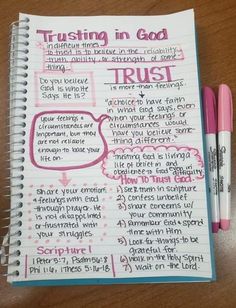 Trusting in God
in difficult times
to trust is to believe in the reliability,
truth, ability or strength of some-
thing.
TRUST
is more than feelings.
Do you believe
God is who He
Says He is?
a choice to have faith
in what God says, even
when your feelings or
circumstances would
have you believe some-
thing different.
Your feelings +
circumstances are
important, but they
are not reliable
enough to base your
life on.
Trusting God is living a
life of belief in and
obedience to God
How To Trust God:
Share your emotions
+ feelings with God
through prayer. He
is not disappointed
or frustrated with
your struggles.
1) Seek truth in scripture
2) Confess unbelief
3) Share concerns w/
your community
4) Remember God + spend
time with Him
5) Look for things to be
grateful for.
6) Walk in the Holy Spirit
7) Wait on the Lord.
Scripture!
1 Peter 5:7, Psalm 56:8
Phil 4:6, 1 Thess 5:16-18